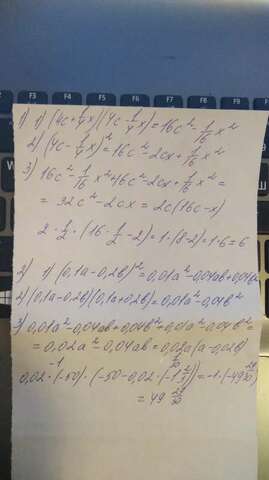 1) 1) (4c+1/4x)(4c-1/4x)=16c²-1/16x²
2) (4c-1/4x)²=16c²-2cx+1/16x²
3) 16c²-1/16x²+16c²-2cx+1/16x²=
=32c²-2cx=2c(16c-x)
2·1/2·(16·1/2-2)=1·(8-2)=1·6=6
2) 1) (0,1a-0,2b)²=0,01a²-0,04ab+0,04b²
2) (0,1a-0,2b)(0,1a+0,2b)=0,01a²-0,04b²
3) 0,01a²-0,04ab+0,04b²+0,01a²-0,04b²=
=0,02a²-0,04ab=0,02a(a-0,02b)
0,02·(-50)·(-50-0,02·(-1
=49